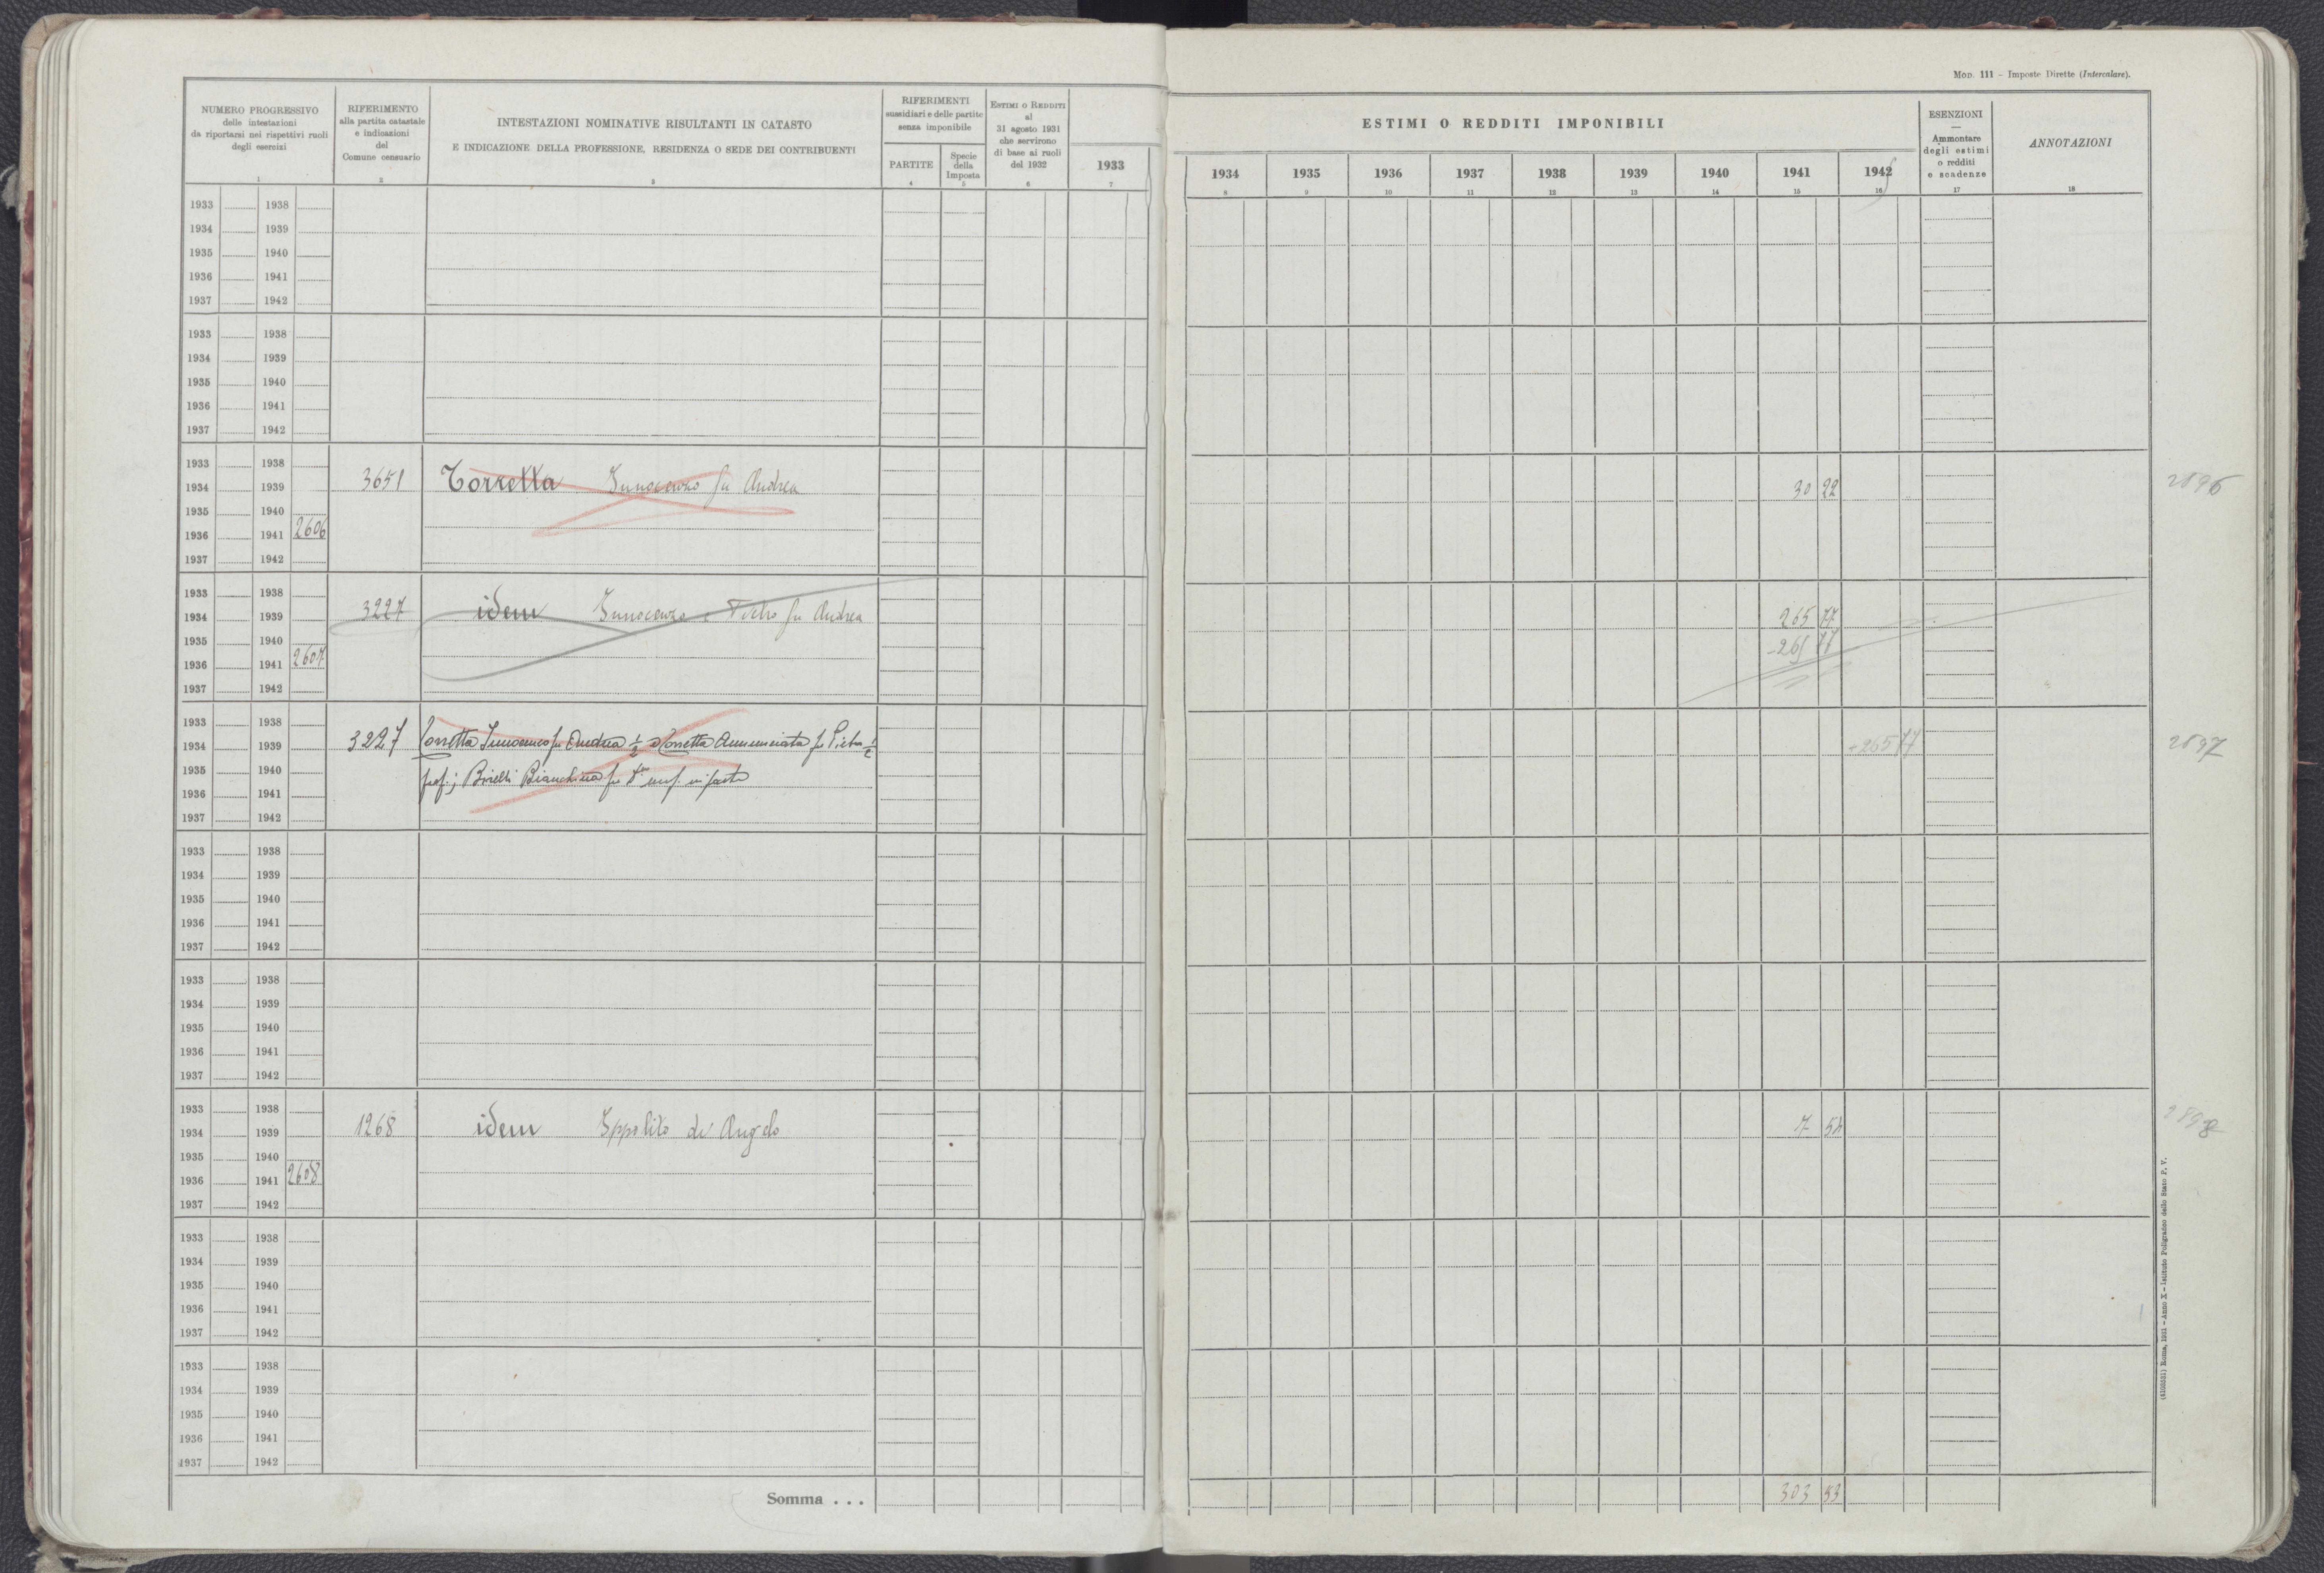 Mod. 111 – Imposte Dirette (Intercalare).
NUMERO PROGRESSIVO
delle intestazioni
da riportarsi nei rispettivi ruoli
degli esercizi
1
RIFERIMENTO
alla partita catastale
e indicazioni
del
Comune censuario
2
INTESTAZIONI NOMINATIVE RISULTANTI IN CATASTO
E INDICAZIONE DELLA PROFESSIONE, RESIDENZA O SEDE DEI CONTRIBUENTI
3
RIFERIMENTI
sussidiari e delle partite
senza imponibile
PARTITE
4
Specie
della
Imposta
5
Estimi o Redditi
al
31 agosto 1931
che servirono
di base ai ruoli
del 1932
6
1933
7
ESTIMI O REDDITI IMPONIBILI
1934 1935 1936 1937 1938 1939 1940 1941 1942
8 9 10 11 12 13 14 15 16
ESENZIONI
—
Ammontare
degli estimi
o redditi
e scadenze
17
ANNOTAZIONI
18
1933 1938
1934 1939
1935 1940
1936 1941
1937 1942
1933 1938
1934 1939
1935 1940
1936 1941
1937 1942
1933 1938
1934 1939 3651 Torretta Innocenzo fu Andrea 30 22 2896
1935 1940
1936 1941 2606
1937 1942
1933 1938
1934 1939 3227 idem Innocenzo e Pietro fu Andrea 265 77
1935 1940 -265 77
1936 1941 2607
1937 1942
1933 1938
1934 1939 3227 Torretta Innocenzo fu Andrea 1/2 e Torretta Annunciata fu Pietro 1/2 +265 77 2897
1935 1940 prop.; Bianchina fu usuf. in parte
1936 1941
1937 1942
1933 1938
1934 1939
1935 1940
1936 1941
1937 1942
1933 1938
1934 1939
1935 1940
1936 1941
1937 1942
1933 1938
1934 1939 1268 idem Ippolito di Angelo 7 54 2898
1935 1940
1936 1941 2608
1937 1942
1933 1938
1934 1939
1935 1940
1936 1941
1937 1942
1933 1938
1934 1939
1935 1940
1936 1941
1937 1942
Somma . . . 303 53
(4105531) Roma, 1931 – Anno X – Istituto Poligrafico dello Stato P. V.